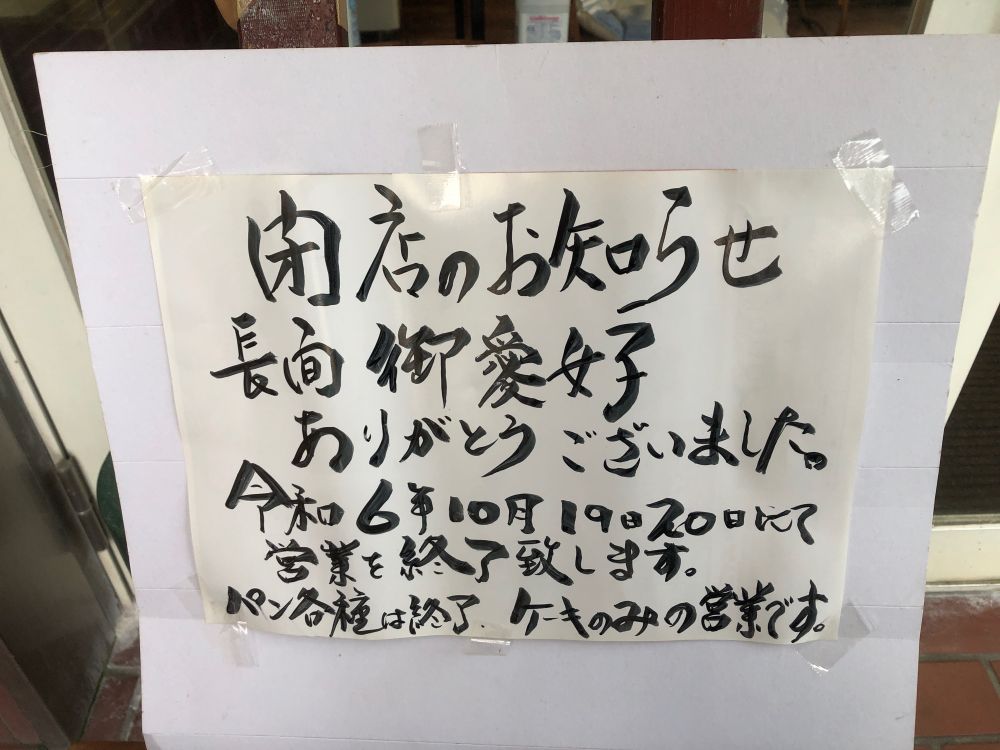 閉店のお知らせ
長面御愛好
ありがとうございました。
令和6年10月19日20日にて
営業を終了致します。
パン各種は終了.ケーキのみの営業です。